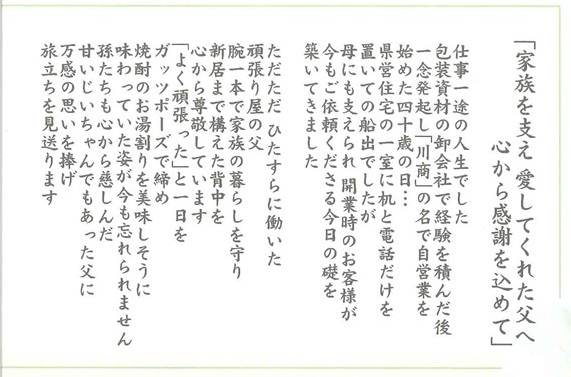 「家族を支え 愛してくれた父へ
心から感謝を込めて」
仕事一途の人生でした
包装資材の卸会社で経験を積んだ後
一念発起し「川商」の名で自営業を
始めた四十歳の日…
県営住宅の一室に机と電話だけを
置いての船出でしたが
母にも支えられ 開業時のお客様が
今もご依頼くださる今日の礎を
築いてきました
ただただ ひたすらに働いた
頑張り屋の父
腕一本で家族の暮らしを守り
新居まで構えた背中を
心から尊敬しています
「よく頑張った」と一日を
ガッツポーズで締め
焼酎のお湯割りを美味しそうに
味わっていた姿が今も忘れられません
孫たちも心から慈しんだ
甘いじいちゃんでもあった父に
万感の思いを捧げ
旅立ちを見送ります